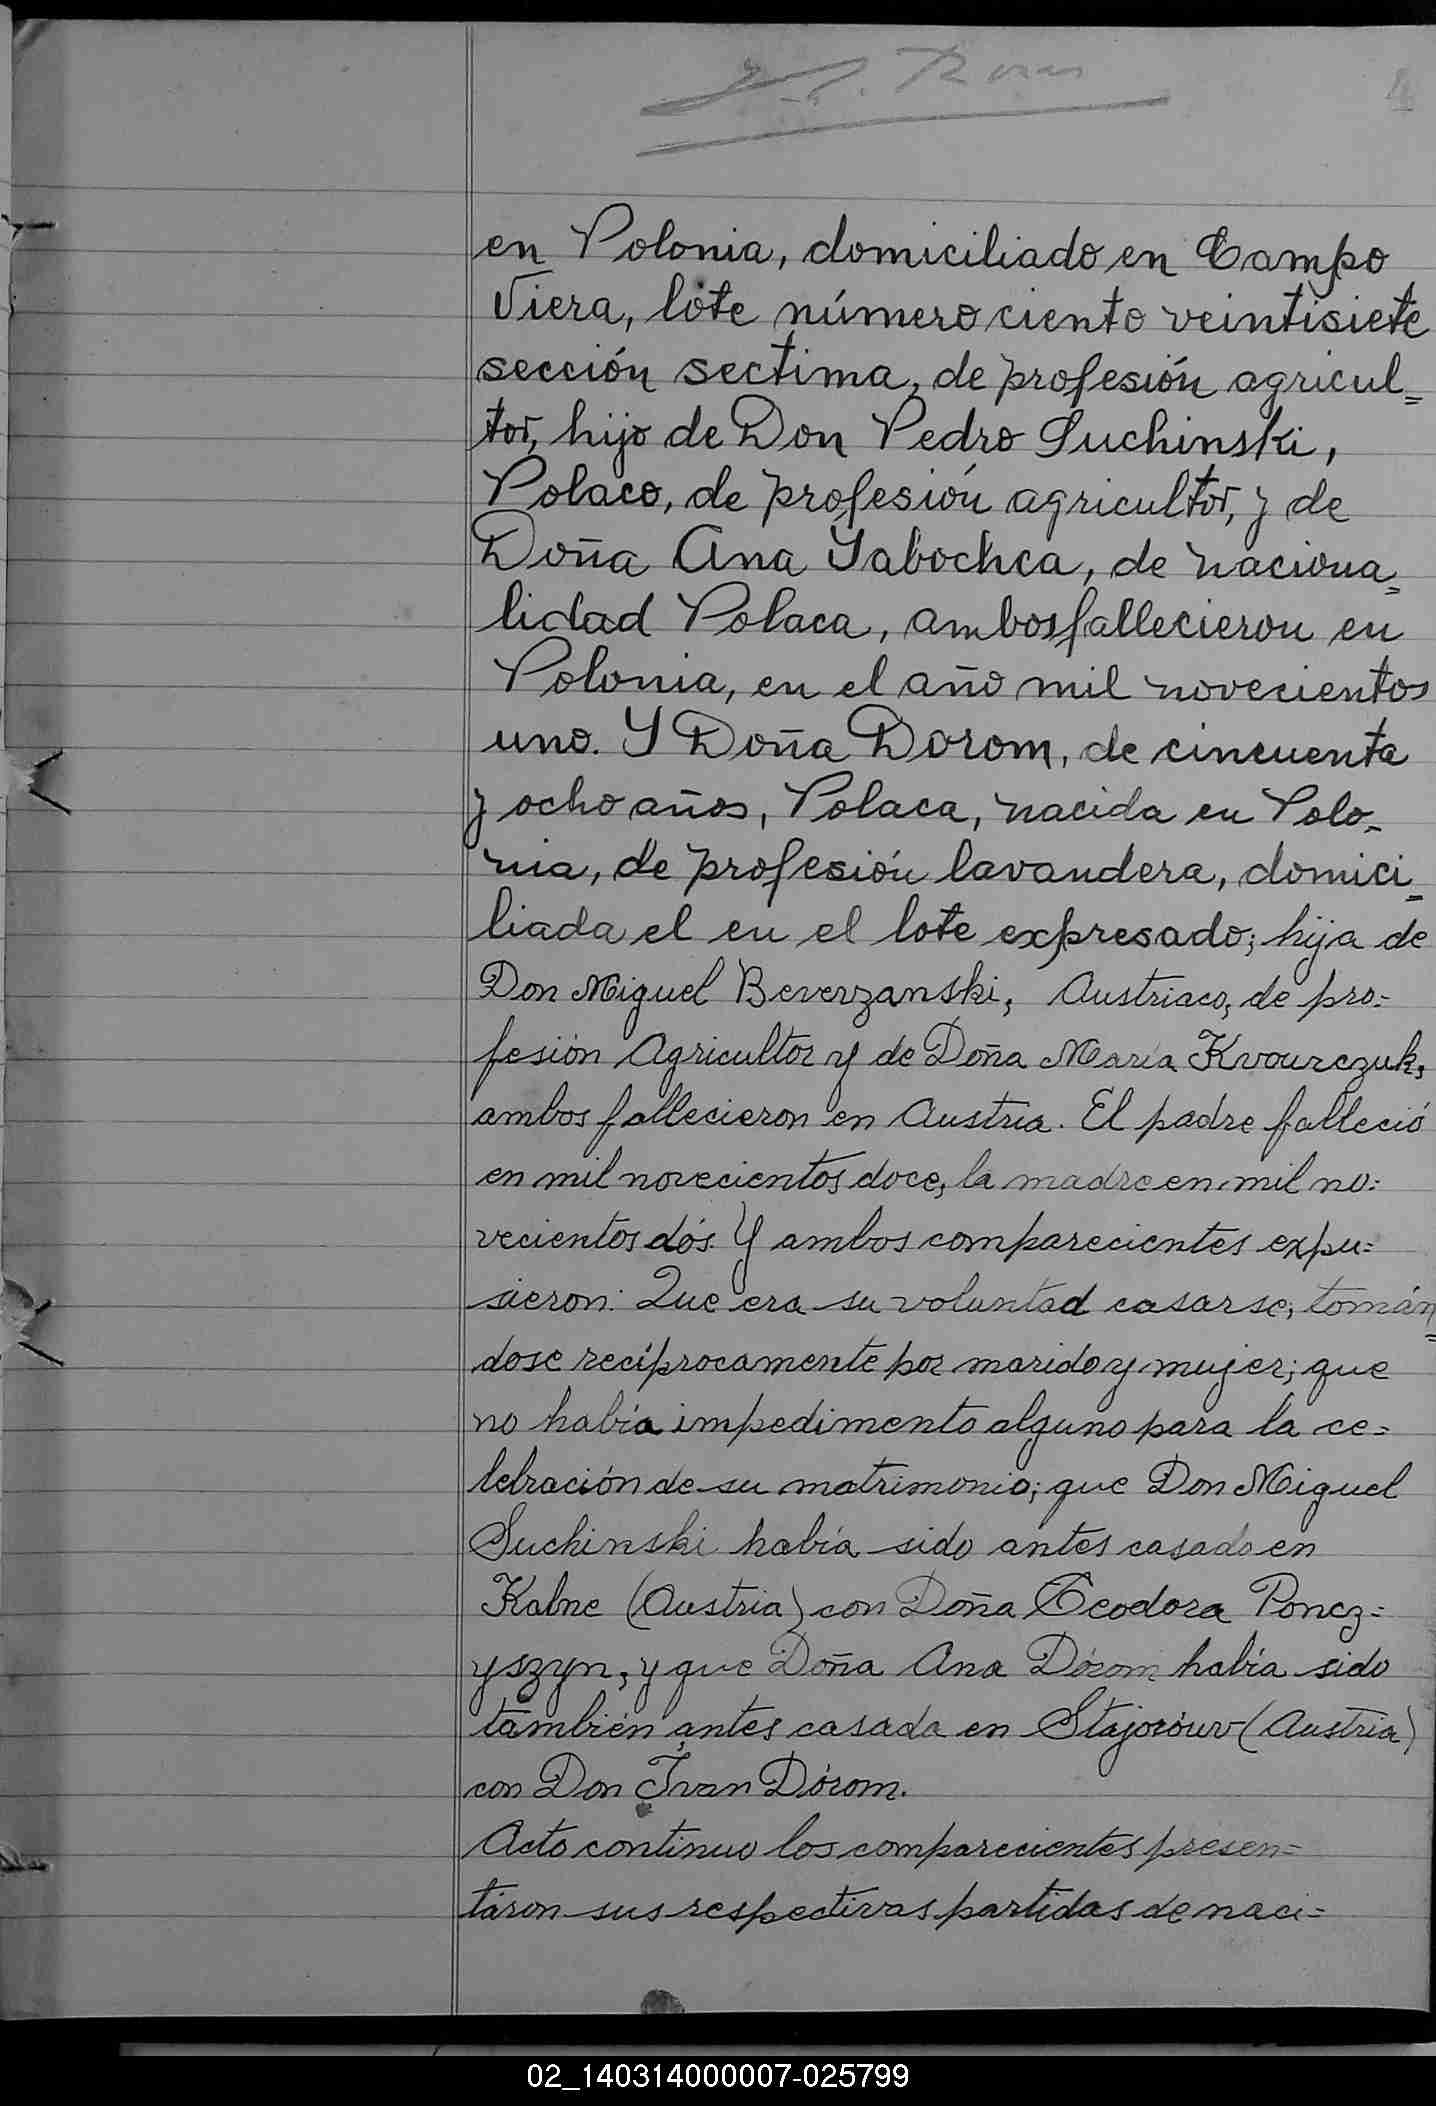 en Polonia, domiciliado en Campo
Viera, lote número ciento veintisiete
sección sectima, de profesión agricul=
tor, hijo de Don Pedro Suchinski,
Polaco, de profesión agricultor, y de
Doña Ana Yabochca, de naciona=
lidad Polaca, ambos fallecieron en
Polonia, en el año mil novecientos
uno. Y Doña Dorom, de cincuenta
y ocho años, Polaca, nacida en Polo=
nia, de profesión lavandera, domici=
liada el en el lote expresado; hija de
Don Miguel Beverzanski, Austriaco, de pro=
fesión Agricultor y de Doña María Kvourczuk,
ambos fallecieron en Austria. El padre falleció
en mil novecientos doce, la madre en mil no=
vecientos dós. Y ambos comparecientes expu=
sieron: Que era su voluntad casarse, tomán=
dose recíprocamente por marido y mujer; que
no había impedimento alguno para la ce=
lebración de su matrimonio; que Don Miguel
Suchinski había sido antes casado en
Kalne (Austria) con Doña Teodora Poncz=
yszyn, y que Doña Ana Dórom había sido
también antes casada en Stajorówv (Austria)
con Don Ivan Dórom.
Acto continuo los comparecientes presen=
táron sus respectivas partidas de naci=
02_140314000007-025799